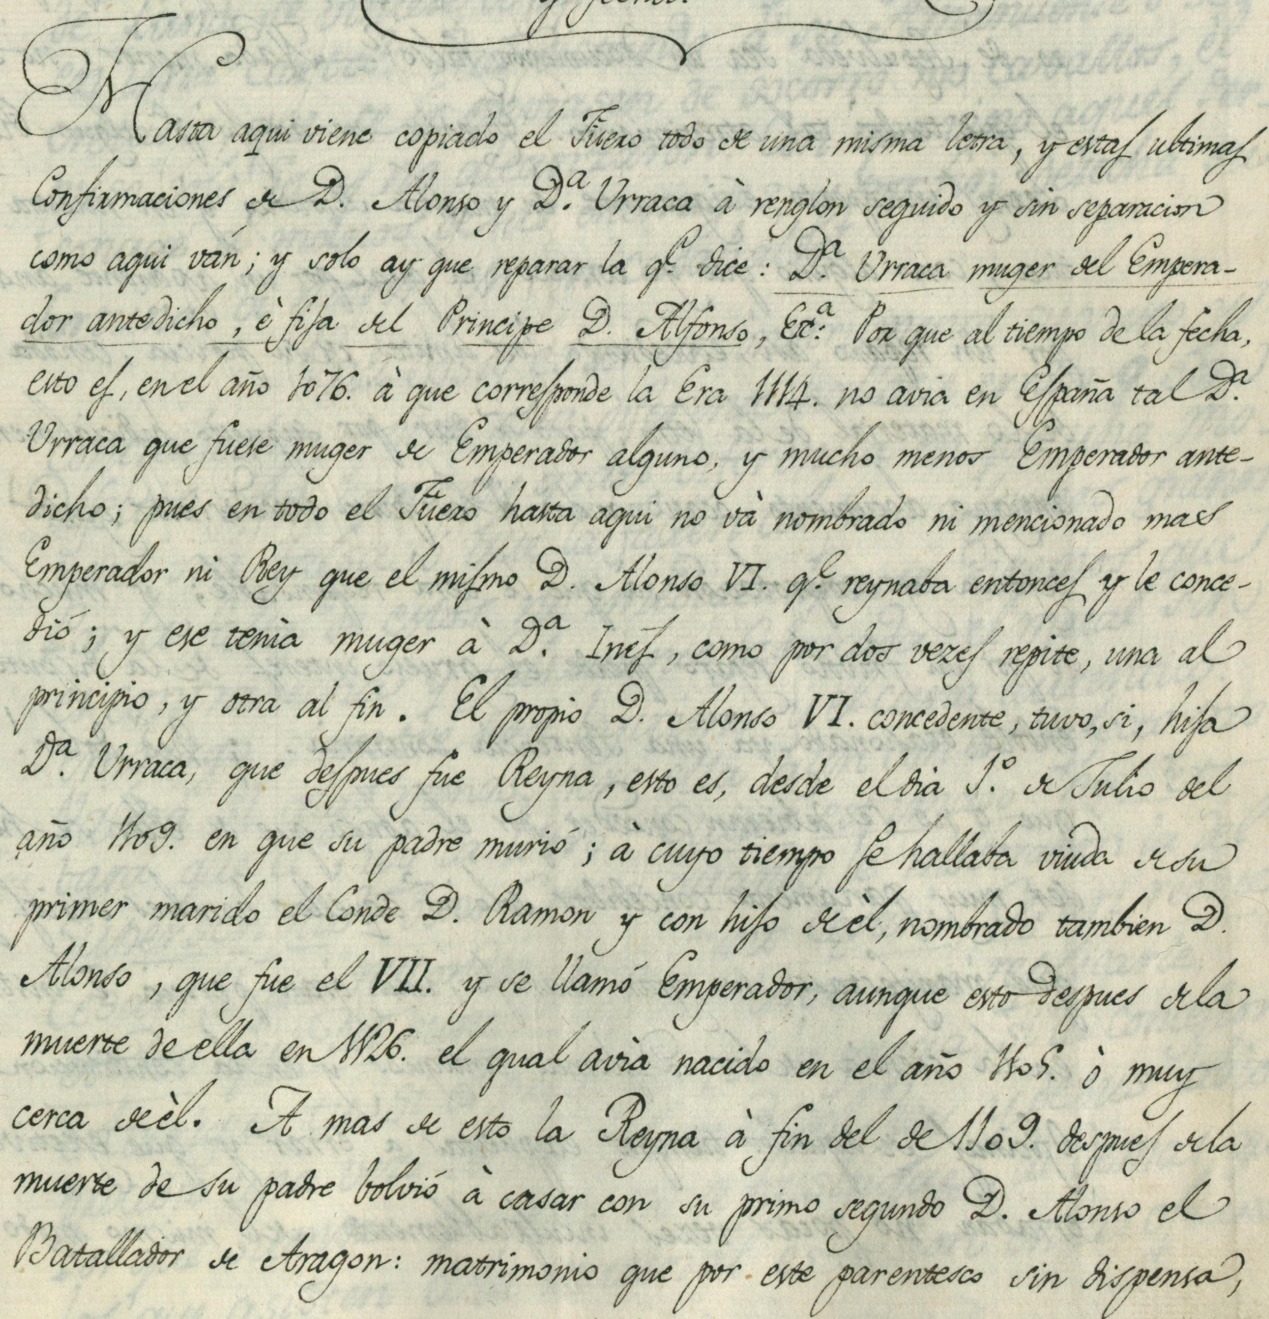 y fecho.
Hasta aqui viene copiado el Fuero todo de una misma letra, y estas ultimas
Confirmaciones de D. Alonso y D.ª Urraca à renglon seguido y sin separacion
como aqui ván; y solo ay que reparar la q.e dice: D.ª Urraca muger del Empera-
dor antedicho, è fija del Principe D. Alfonso, Etc.ª Por que al tiempo de la fecha,
esto es, en el año 1076. à que corresponde la Era 1114. no avia en España tal D.ª
Urraca que fuese muger de Emperador alguno, y mucho menos Emperador ante-
dicho; pues en todo el Fuero hasta aqui no và nombrado ni mencionado mas
Emperador ni Rey que el mismo D. Alonso VI. q.e reynaba entonces y le conce-
dió; y ese tenia muger à D.ª Inés, como por dos vezes repite, una al
principio, y otra al fin. El propio D. Alonso VI. concedente, tuvo, si, hija
D.ª Urraca, que despues fue Reyna, esto es, desde el dia 1.º de Julio del
año 1109. en que su padre murió; à cuyo tiempo se hallaba viuda de su
primer marido el Conde D. Ramon y con hijo de èl, nombrado tambien D.
Alonso, que fue el VII. y se llamó Emperador, aunque esto despues de la
muerte de ella en 1126. el qual avia nacido en el año 1105. ò muy
cerca de èl. A mas de esto la Reyna à fin del de 1109. despues de la
muerte de su padre bolvió à casar con su primo segundo D. Alonso el
Batallador de Aragon: matrimonio que por este parentesco sin dispensa,